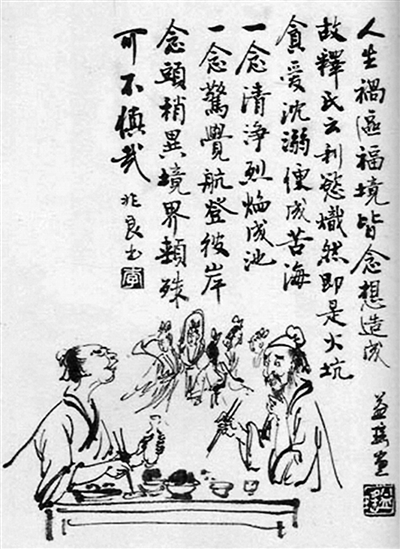 人生禍區福境皆念想造成
故釋氏云利慾熾然即是火坑
貪愛沈溺便成苦海
一念清淨烈焰成池
一念驚覺航登彼岸
念頭稍異境界頓殊
可不慎哉
兆良书
益瑤畫